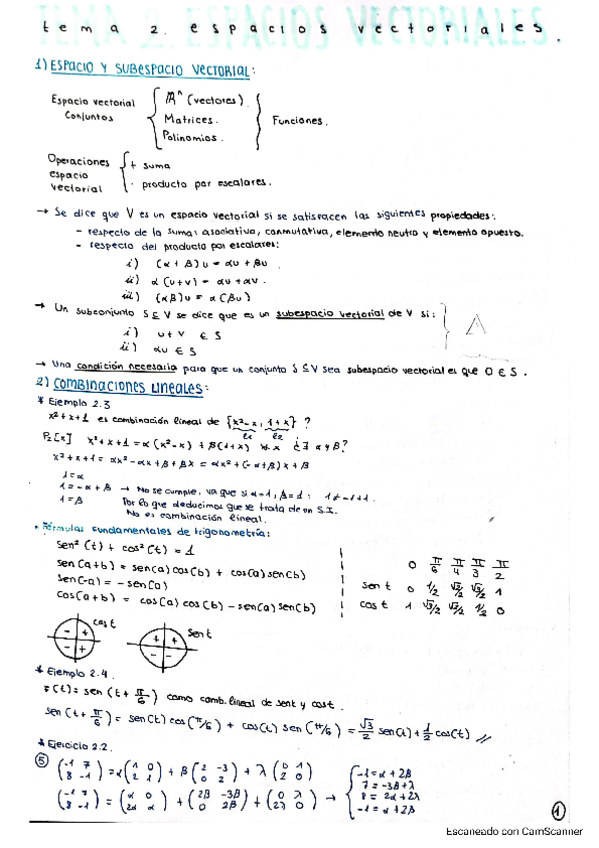 TEMA 2. ESPACIOS VECTORIALES.
tema 2. espacios vectoriales.
1) ESPACIO Y SUBESPACIO VECTORIAL:
Espacio vectorial Conjuntos { ℝⁿ (vectores). Matrices. Polinomios. } Funciones.
Operaciones espacio vectorial { + suma · producto por escalares.
→ Se dice que V es un espacio vectorial si se satisfacen las siguientes propiedades:
- respecto de la suma: asociativa, conmutativa, elemento neutro y elemento opuesto.
- respecto del producto por escalares:
i) (α + β)u = αu + βu.
ii) α(u+v) = αu + αv.
iii) (αβ)u = α(βu)
→ Un subconjunto S ⊆ V se dice que es un subespacio vectorial de V si:
i) u + v ∈ S
ii) αu ∈ S
→ Una condición necesaria para que un conjunto S ⊆ V sea subespacio vectorial es que 0 ∈ S.
2) COMBINACIONES LINEALES:
* Ejemplo 2.3
x²+x+1 es combinación lineal de {x²-x, 1+x}?
e₁ e₂
P₂[x] x²+x+1 = α(x²-x) + β(1+x) ∀x ¿∃ α y β?
x²+x+1 = αx² - αx + β + βx = αx² + (-α+β)x + β
1 = α
1 = -α + β → No se cumple, ya que si α=1, β=1: 1 ≠ -1+1.
1 = β Por lo que deducimos que se trata de un S.I.
No es combinación lineal.
* Fórmulas fundamentales de trigonometría:
sen²(t) + cos²(t) = 1
sen(a+b) = sen(a)cos(b) + cos(a)sen(b)
sen(-a) = -sen(a)
cos(a+b) = cos(a)cos(b) - sen(a)sen(b)
0 π/6 π/4 π/3 π/2
sen t 0 1/2 √2/2 √3/2 1
cos t 1 √3/2 √2/2 1/2 0
cos t
- +
- +
sen t
+ +
- -
* Ejemplo 2.4.
F(t) = sen(t + π/6) como comb. lineal de sent y cost.
sen(t + π/6) = sen(t) cos(π/6) + cos(t) sen(π/6) = √3/2 sen(t) + 1/2 cos(t) //
* Ejercicio 2.2.
⑤ (-1 7 / 8 -1) = α(1 0 / 2 1) + β(2 -3 / 0 2) + λ(0 1 / 2 0)
(-1 7 / 8 -1) = (α 0 / 2α α) + (2β -3β / 0 2β) + (0 λ / 2λ 0) → { -1 = α + 2β
7 = -3β + λ
8 = 2α + 2λ
-1 = α + 2β
①
Escaneado con CamScanner